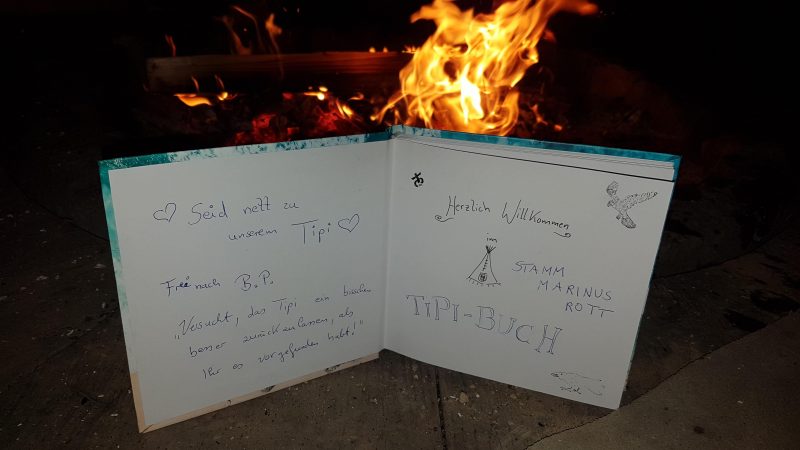 Seid nett zu
unserem Tipi
Frei nach B.P.
„Versucht, das Tipi ein bisschen
besser zurückzulassen, als
Ihr es vorgefunden habt!"
Herzlich Willkommen
im
STAMM
MARINUS
ROTT
TiPI-BUCH